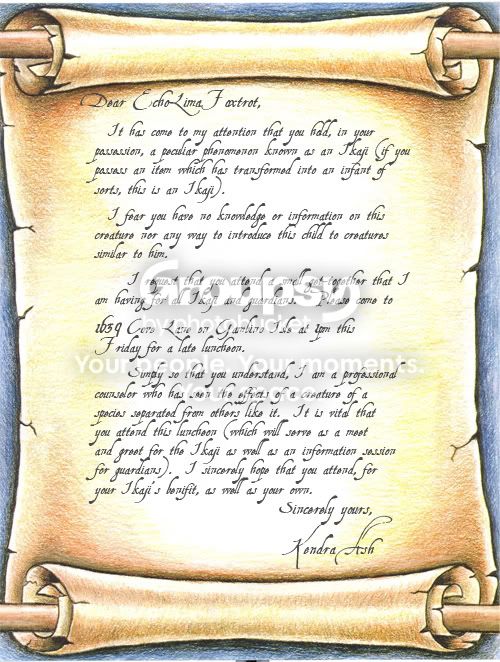 Dear Echo-Lima Foxtrot,
It has come to my attention that you held, in your
possession, a peculiar phenomenon known as an Ikaji (if you
possess an item which has transformed into an infant of
sorts, this is an Ikaji).
I fear you have no knowledge or information on this
creature nor any way to introduce this child to creatures
similar to him.
I request that you attend a small get-together that I
am having for all Ikaji and guardians. Please come to
1639 Lane on Gambino Isle at 1pm this
Friday for a late luncheon.
Simply so that you understand, I am a professional
counselor who has seen the effects of a creature of a
species separated from others like it. It is vital that
you attend this luncheon (which will serve as a meet
and greet for the Ikaji as well as an information session
for guardians). I sincerely hope that you attend, for
your Ikaji's benifit, as well as your own.
Sincerely yours,
Kendra Ash
by photobucket
Your people. Your moments.